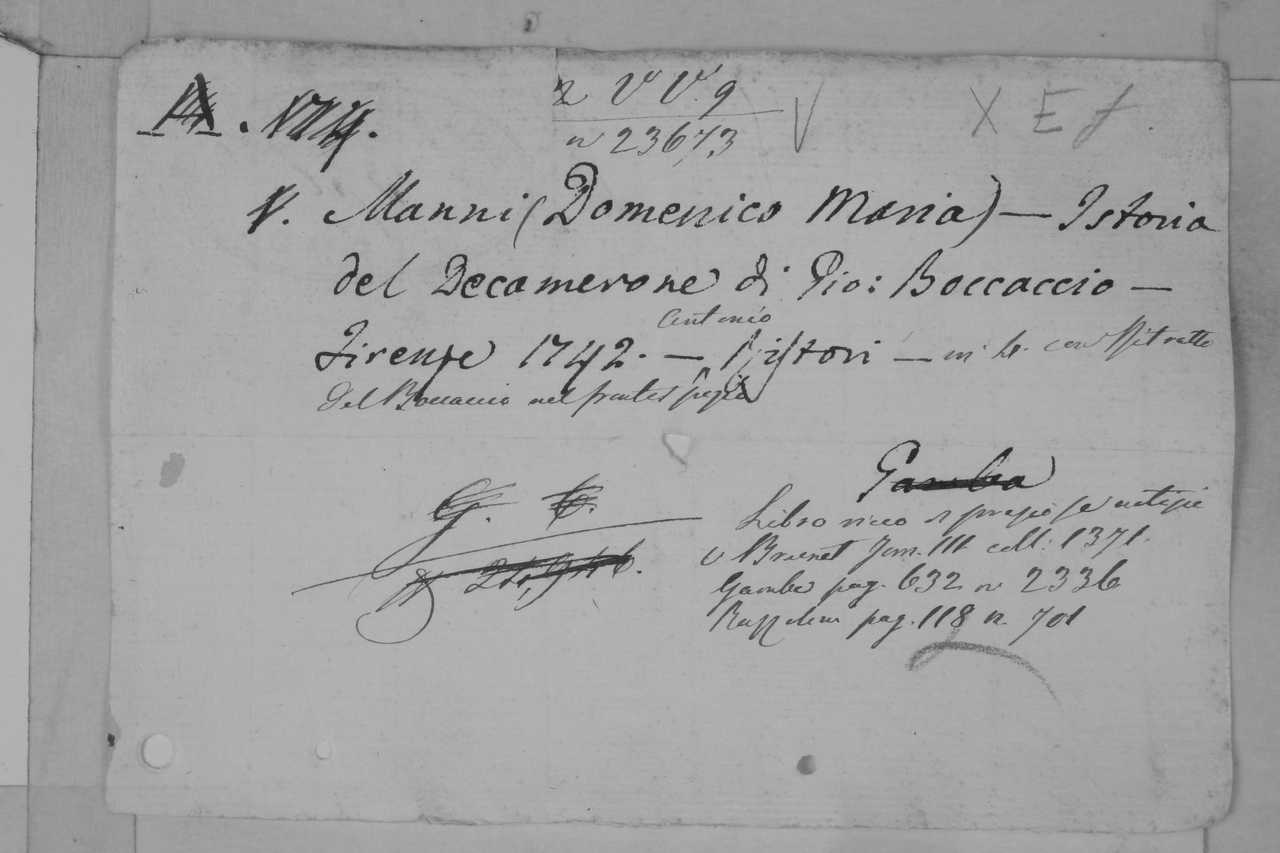 2 V V. 9 V X E f
n 23673
V. Manni (Domenico Maria) — Istoria
del Decamerone di Gio: Boccaccio —
Antonio
Firenze 1742. — Ristori — in 4. con Ritratto
del Boccaccio nel frontespizio
Gamba
Libro raro e
G.
V Brunet Tom. III coll. 1371.
Gamba pag. 632 n 2336
Razzolini pag. 118 n. 701